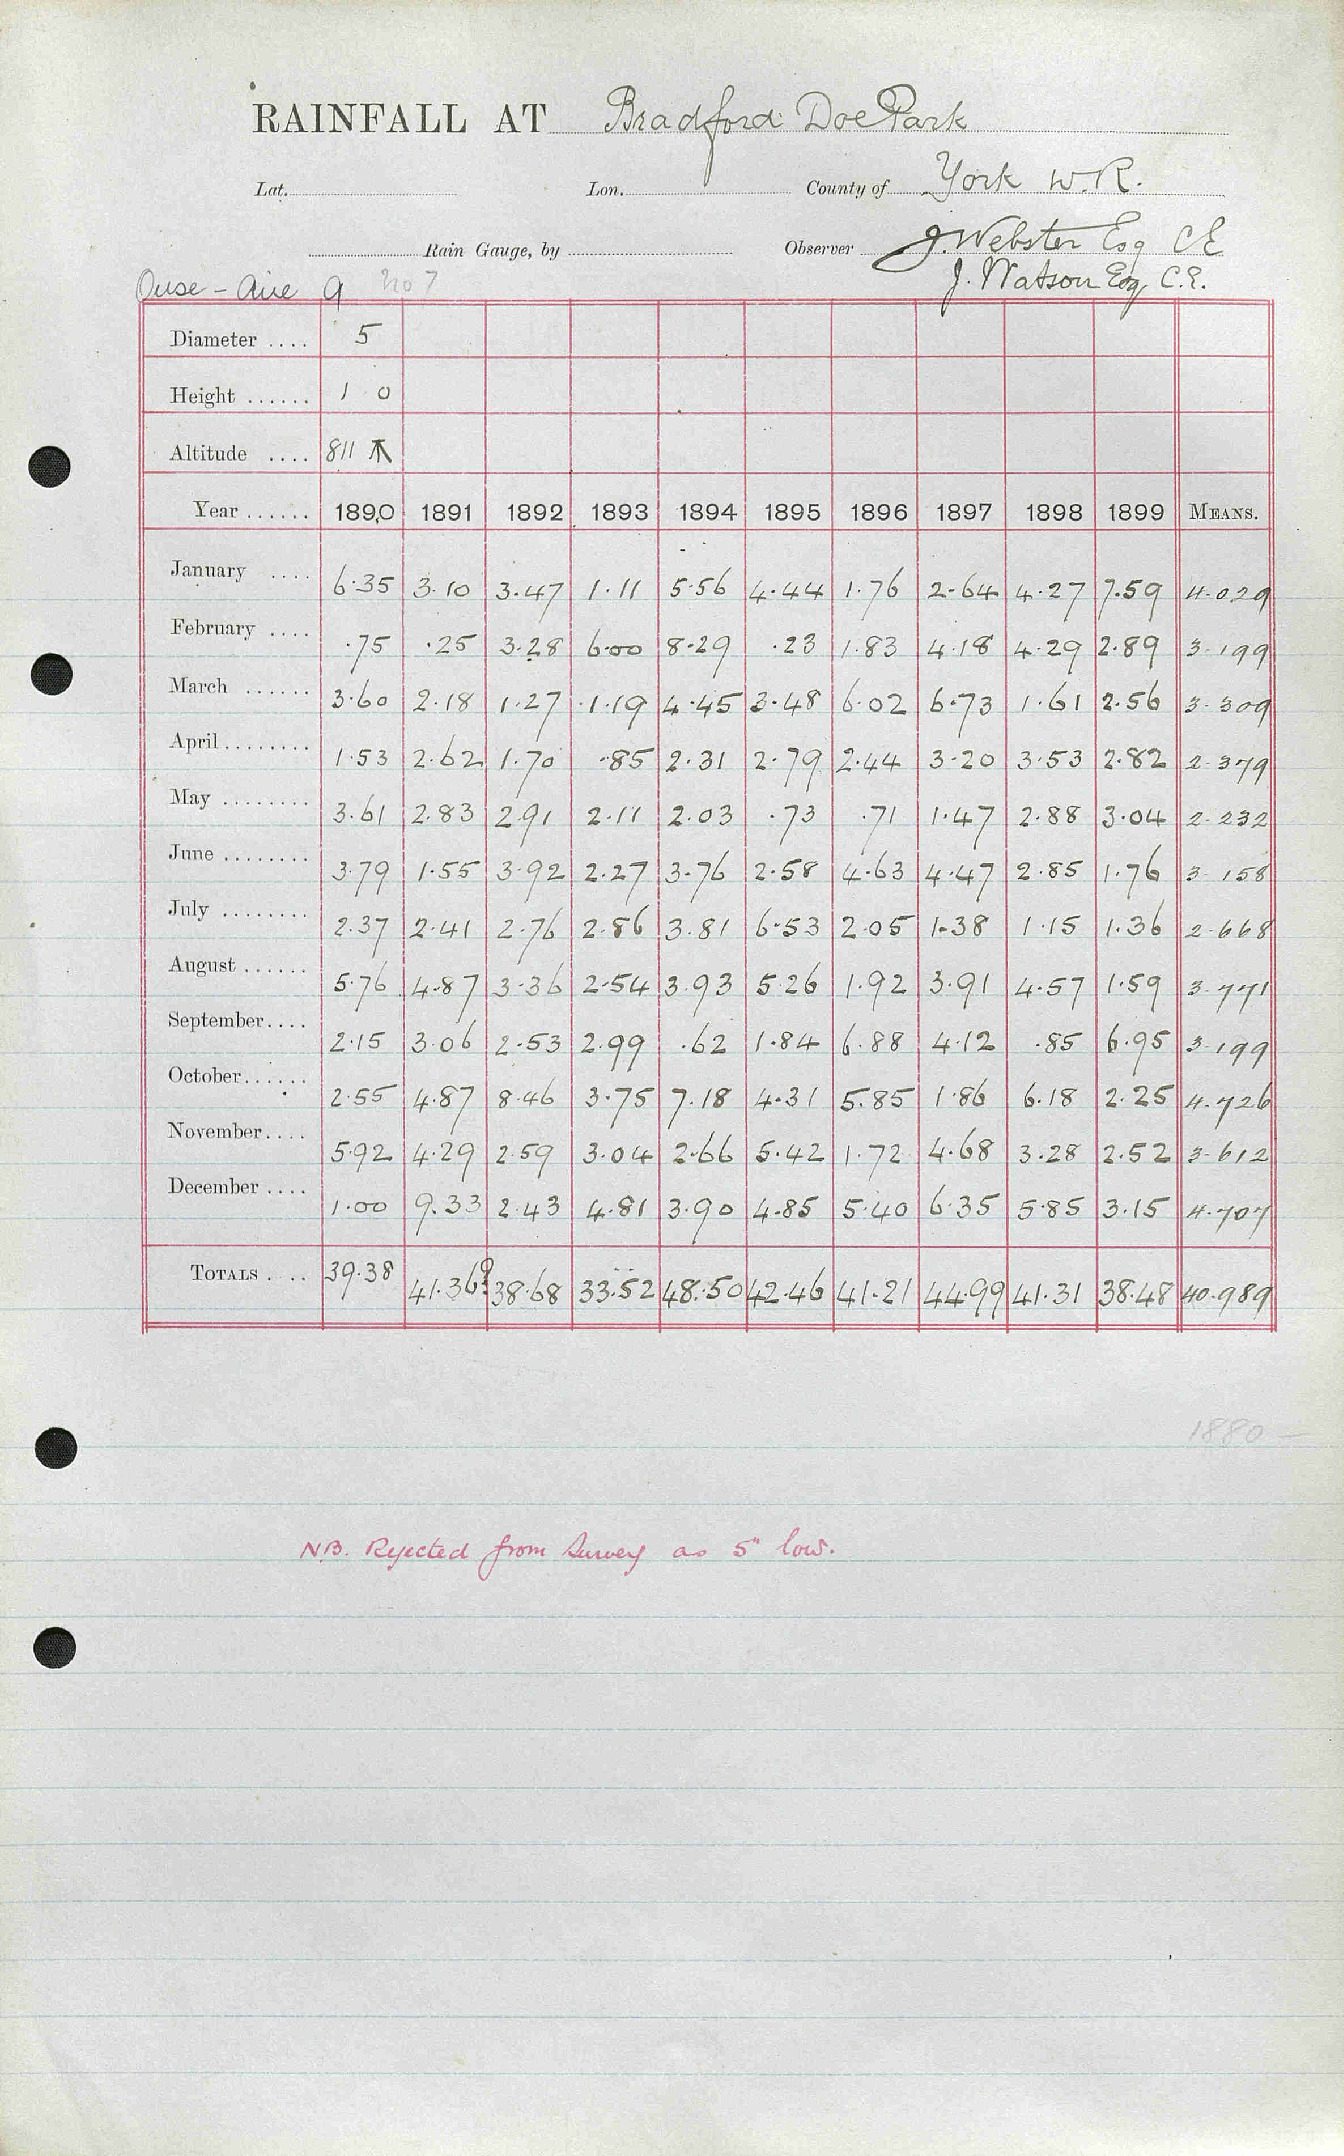 RAINFALL AT Bradford Doe Park
Lat. Lon. County of York W.R.
Rain Gauge, by Observer J. Webster Esq CE
J. Watson Esq, C.E.
Ouse - Aire 9 No 7
Diameter .... 5
Height ...... 1 0
Altitude .... 811
Year ...... 1890 1891 1892 1893 1894 1895 1896 1897 1898 1899 MEANS.
January .... 6.35 3.10 3.47 1.11 5.56 4.44 1.76 2.64 4.27 7.59 4.029
February .... .75 .25 3.28 6.00 8.29 .23 1.83 4.18 4.29 2.89 3.199
March ...... 3.60 2.18 1.27 1.19 4.45 3.48 6.02 6.73 1.61 2.56 3.309
April ........ 1.53 2.62 1.70 .85 2.31 2.79 2.44 3.20 3.53 2.82 2.379
May ........ 3.61 2.83 2.91 2.11 2.03 .73 .71 1.47 2.88 3.04 2.232
June ........ 3.79 1.55 3.92 2.27 3.76 2.58 4.63 4.47 2.85 1.76 3.158
July ........ 2.37 2.41 2.76 2.86 3.81 6.53 2.05 1.38 1.15 1.36 2.668
August ...... 5.76 4.87 3.36 2.54 3.93 5.26 1.92 3.91 4.57 1.59 3.771
September.... 2.15 3.06 2.53 2.99 .62 1.84 6.88 4.12 .85 6.95 3.199
October...... 2.55 4.87 8.46 3.75 7.18 4.31 5.85 1.86 6.18 2.25 4.726
November.... 5.92 4.29 2.59 3.04 2.66 5.42 1.72 4.68 3.28 2.52 3.612
December .... 1.00 9.33 2.43 4.81 3.90 4.85 5.40 6.35 5.85 3.15 4.707
TOTALS .... 39.38 41.36? 38.68 33.52 48.50 42.46 41.21 44.99 41.31 38.48 40.989
1880 -
N.B. Rejected from Survey as 5" low.